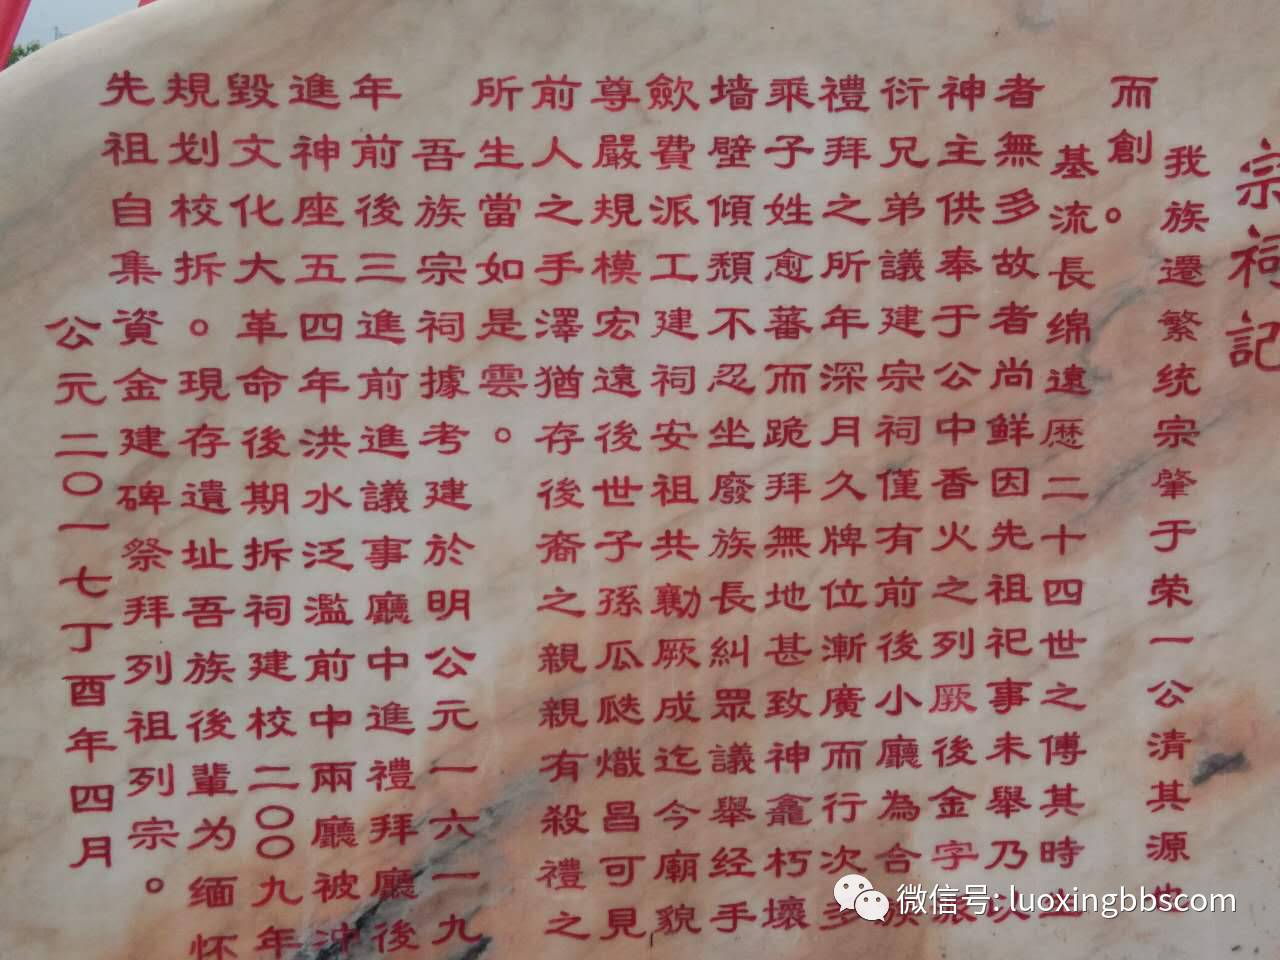 宗祠記
我族遷繁统宗肇于荣一公清其源
而創。
基流長绵遠歷二十四世之傅其時
者無多故者尚鮮因先祖祀事未舉乃
神主供奉于公中香火之列厥後金字派
衍兄弟議建宗祠僅有前後小廳為合族
禮拜之所年深月久牌位漸廣而行次多
乘子姓愈蕃而跪拜無地甚致神龕朽壞
墙壁傾頹不忍坐廢族長糾眾議舉经手
歛費派工建祠安祖共勷厥成迄今廟貌
尊嚴規模宏遠後世子孫瓜瓞熾昌可見
前人之手澤猶存後裔之親親有殺禮之
所生當如是雲。
吾族宗祠據考建於明公元一六一九
年前後三進前進議事廳中進禮拜廳後
進神座五四年洪水泛濫前中兩廳被沖
毀文化大革命後期拆祠建校二〇〇九年
規划校拆。現存遺址吾族後輩为缅怀
先祖自集資金建碑祭拜列祖列宗。
公元二〇一七丁酉年四月
微信号: luoxingbbscom